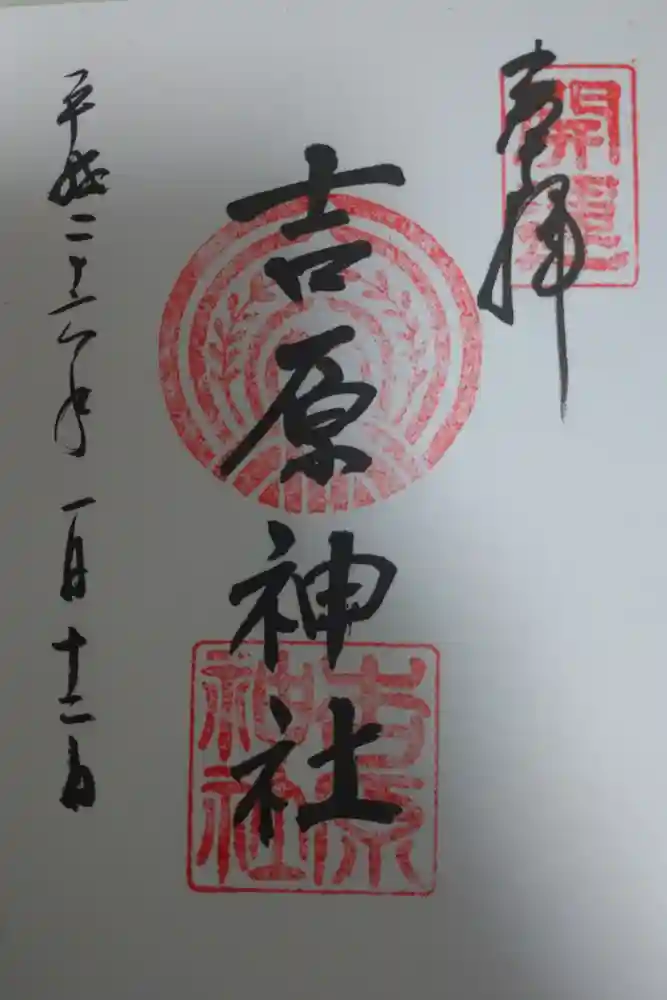 奉拝
開運
吉原神社
吉原神社
平成二十六年一月十二日